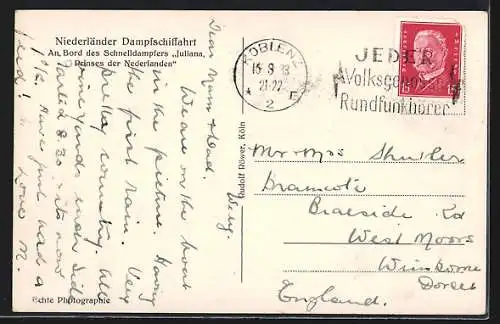 Niederländer Dampfschiffahrt
An Bord des Schnelldampfers „Juliana,
Prinses der Nederlanden"
Dear Mum & Dad.
We are on the boat
in the picture. Having
the first rain. Very
pretty country. All
vine yards each side
Started 8.30 & its now
Have just had a
feed!
Love M.
Echte Photographie
Rudolf Röwer, Köln
KOBLENZ
15 8 33
21-22
* 2 F
JEDER
Volksgenosse
Rundfunkhörer
15 15
Mr & Mrs
Bramcote
Braeside Rd
West Moors
Wimborne
Dorset
England.